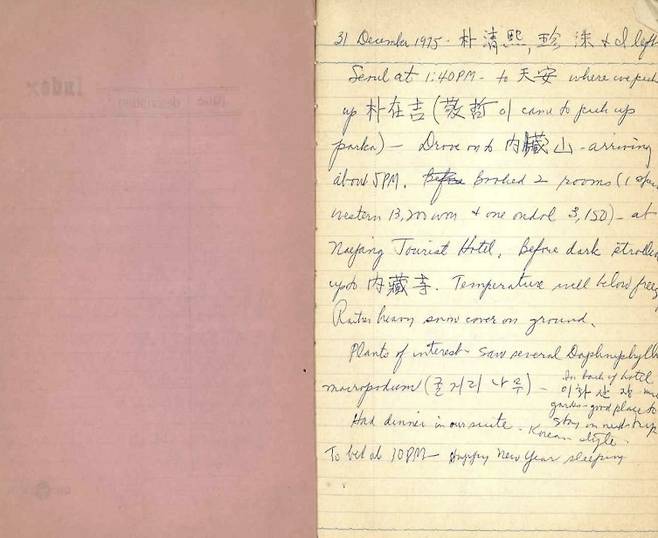 Index
31 December 1975 - 朴清熙, 珍洙 & I left
Seoul at 1:40PM - to 天安 where we pick
up 朴在吉 (敬哲이 came to pick up
parka) - Drove on to 内臟山 - arriving
about 5PM. Before Booked 2 rooms (1
western 13,200 won & one ondol 3,150) - at
Naejang Tourist Hotel. Before dark strolled
up to 内藏寺. Temperature well below
Rather heavy snow cover on ground.
Plants of interest - saw several
macropodum (굴거리 나무) - In back of hotel
garden - good place to
Had dinner in our suite - stay on next trip
Korean style.
To bed at 10PM - Happy New Year sleeping